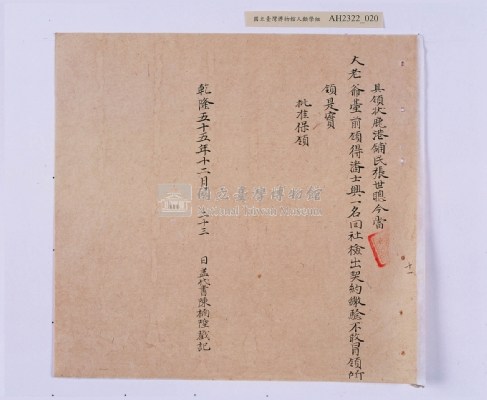 國立臺灣博物館人類學組 AH2322_020
具領狀鹿港舖民張世聰今當
大老爺臺前領得潘士興一名回社檢出契約繳驗不敢冒領所
領是實
批准保領
乾隆五十五年十二月 二十三 日 代書陳 戳記
國立臺灣博物館
National Taiwan Museum